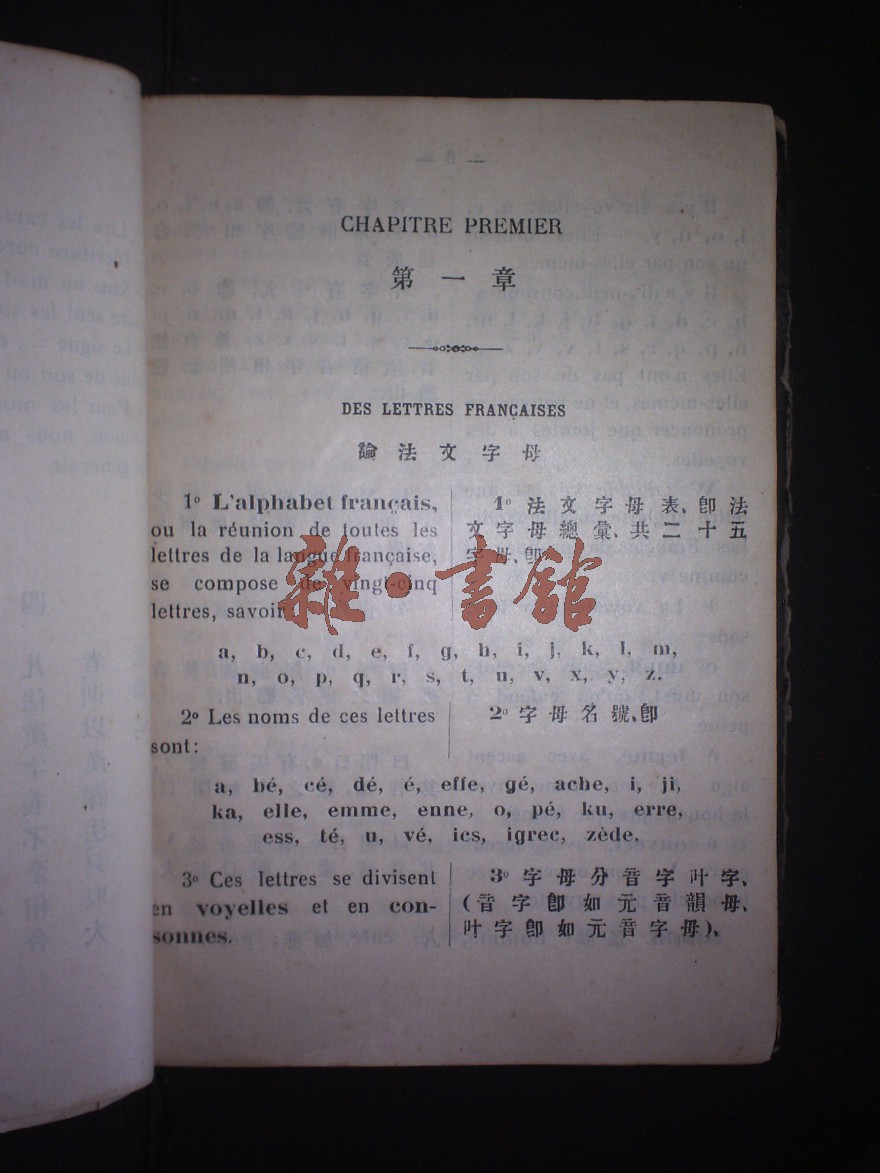 CHAPITRE PREMIER
第一章
DES LETTRES FRANÇAISES
論法文字母
1º L'alphabet français,
ou la réunion de toutes les
lettres de la langue française,
se compose de vingt-cinq
lettres, savoir:
1º 法文字母表、卽法
文字母總彙、共二十五
字母、卽
雜·書館
a, b, c, d, e, f, g, h, i, j, k, l, m,
n, o, p, q, r, s, t, u, v, x, y, z.
2º Les noms de ces lettres
sont:
2º 字母名號、卽
a, bé, cé, dé, é, effe, gé, ache, i, ji,
ka, elle, emme, enne, o, pé, ku, erre,
ess, té, u, vé, ics, igrec, zède.
3º Ces lettres se divisent
en voyelles et en con-
sonnes.
3º 字母分音字叶字、
(音字卽如元音韻母、
叶字卽如元音字母)、